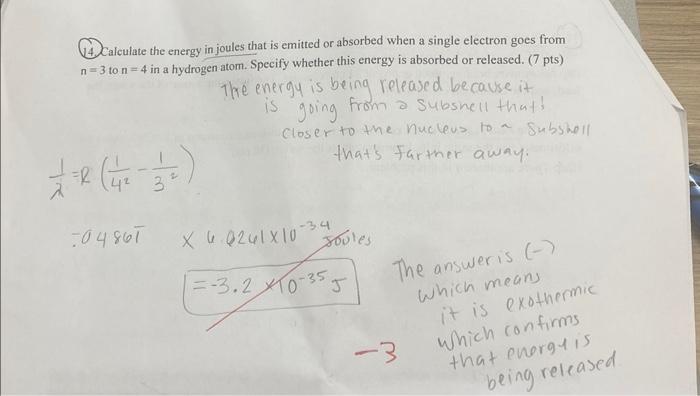 14. Calculate the energy in joules that is emitted or absorbed when a single electron goes from
n = 3 to n = 4 in a hydrogen atom. Specify whether this energy is absorbed or released. (7 pts)
The energy is being released because it
is going from a subshell that's
closer to the nucleus to a subshell
that's farther away.
1/λ = R (1/4² - 1/3²)
= -.04861 × 6.0261 × 10^-34 Joules
= -3.2 × 10^-35 J
The answer is (-)
which means
it is exothermic
which confirms
that energy is
being released
-3